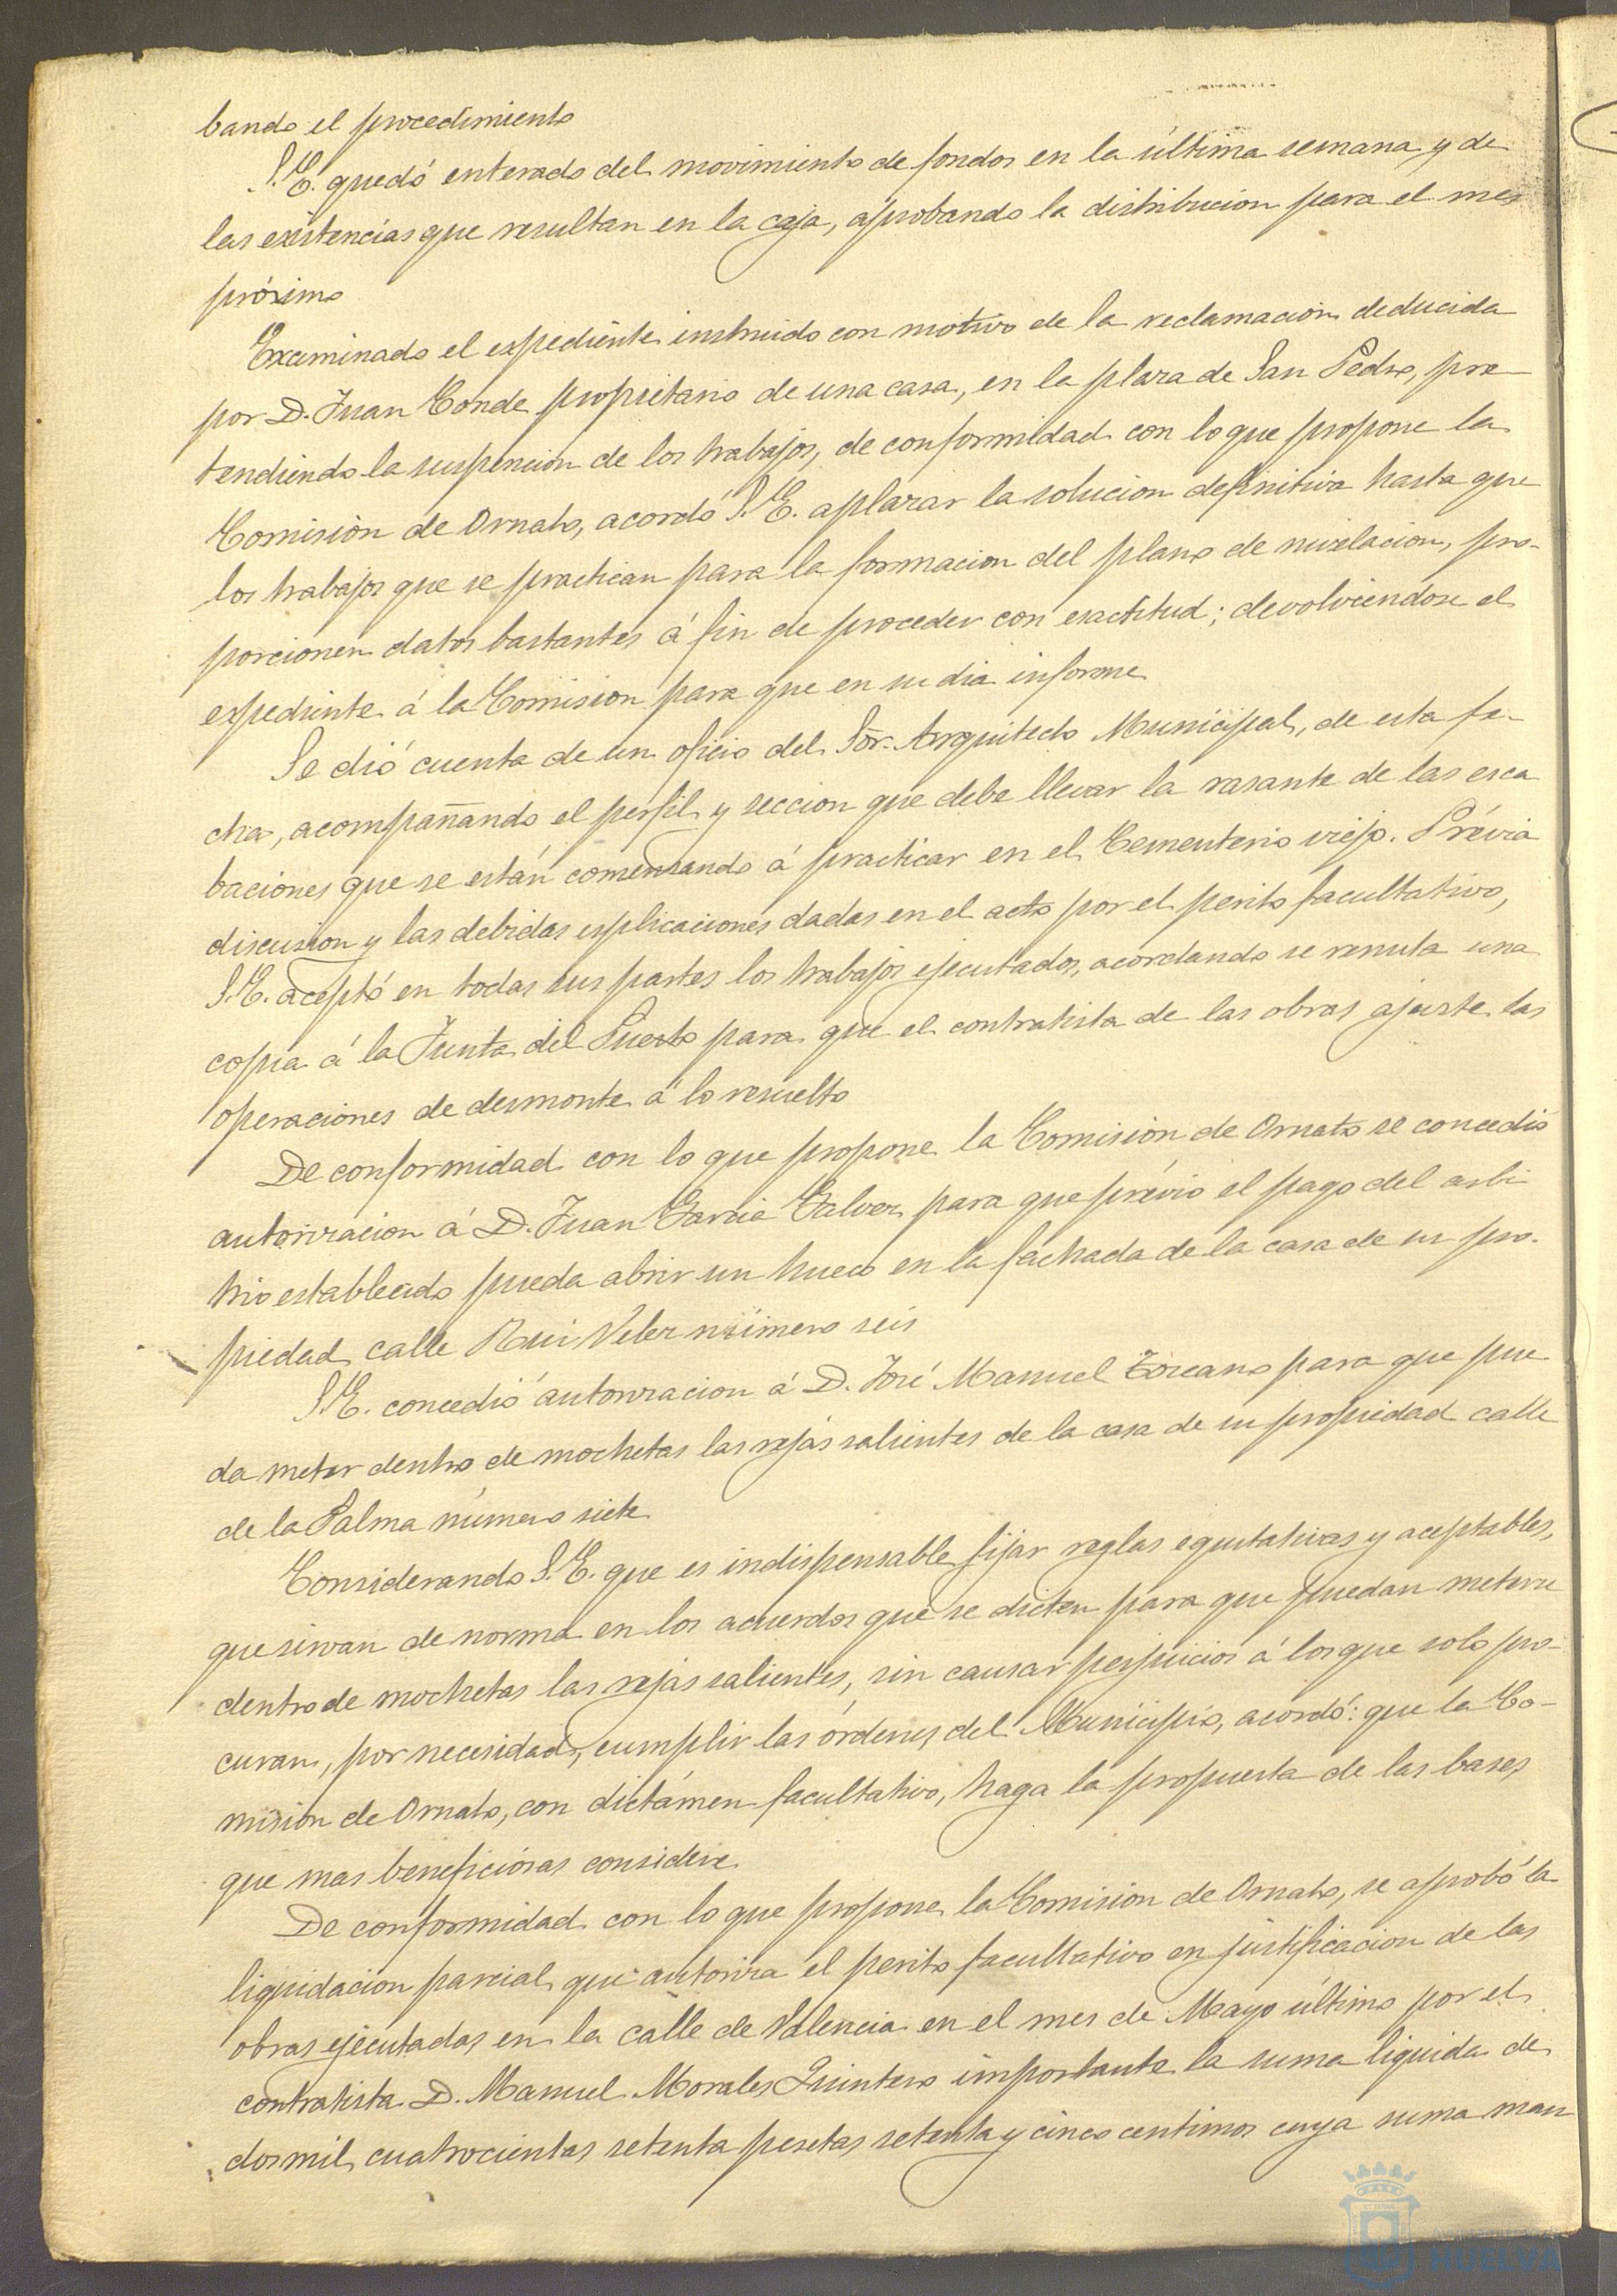 bando el procedimiento
S. E. quedó enterado del movimiento de fondos en la última semana y de
las existencias que resultan en la caja, aprobando la distribucion para el mes
próximo
Examinado el espediente instruido con motivo de la reclamacion deducida
por D. Juan Conde propietario de una casa, en la plaza de San Pedro, pre-
tendiendo la suspension de los trabajos, de conformidad con lo que propone la
Comision de Ornato, acordó S. E. aplazar la solucion definitiva hasta que
los trabajos que se practican para la formacion del plano de nivelacion, pro-
porcionen datos bastantes á fin de proceder con exactitud; devolviendose el
espediente á la Comision para que en su dia informe
Se dió cuenta de un oficio del Sor. Arquitecto Municipal, de esta fe-
cha, acompañando el perfil y seccion que debe llevar la rasante de las esca
baciones que se están comenzando á practicar en el Cementerio viejo. Prévia
discusion y las debidas esplicaciones dadas en el acto por el perito facultativo,
S. E. aceptó en todas sus partes los trabajos ejecutados, acordando se remita una
copia á la Junta del Puerto para que el contratista de las obras ajuste las
operaciones de desmonte á lo resuelto
De conformidad con lo que propone la Comision de Ornato se concedió
autorizacion á D. Juan Garcia Galvez para que prévio el pago del arbi
trio establecido pueda abrir un hueco en la fachada de la casa de su pro-
piedad calle Rui Velez número seis
S. E. concedió autorizacion á D. José Manuel Toscano para que pue
da meter dentro de mochetas las rejas salientes de la casa de su propiedad calle
de la Palma número siete
Considerando S. E. que es indispensable fijar reglas equitativas y aceptables,
que sirvan de norma en los acuerdos que se dicten para que puedan meterse
dentro de mochetas las rejas salientes, sin causar perjuicios á los que solo pro-
curan, por necesidad, cumplir las órdenes del Municipio, acordó: que la Co-
mision de Ornato, con dictámen facultativo, haga la propuesta de las bases
que mas beneficiosas considere
De conformidad con lo que propone la Comision de Ornato, se aprobó la
liquidacion parcial que autoriza el perito facultativo en justificacion de las
obras ejecutadas en la calle de Valencia en el mes de Mayo último por el
contratista D. Manuel Morales Quintero importante la suma liquida de
dos mil cuatrocientas setenta pesetas setenta y cinco centimos cuya suma man
HUELVA